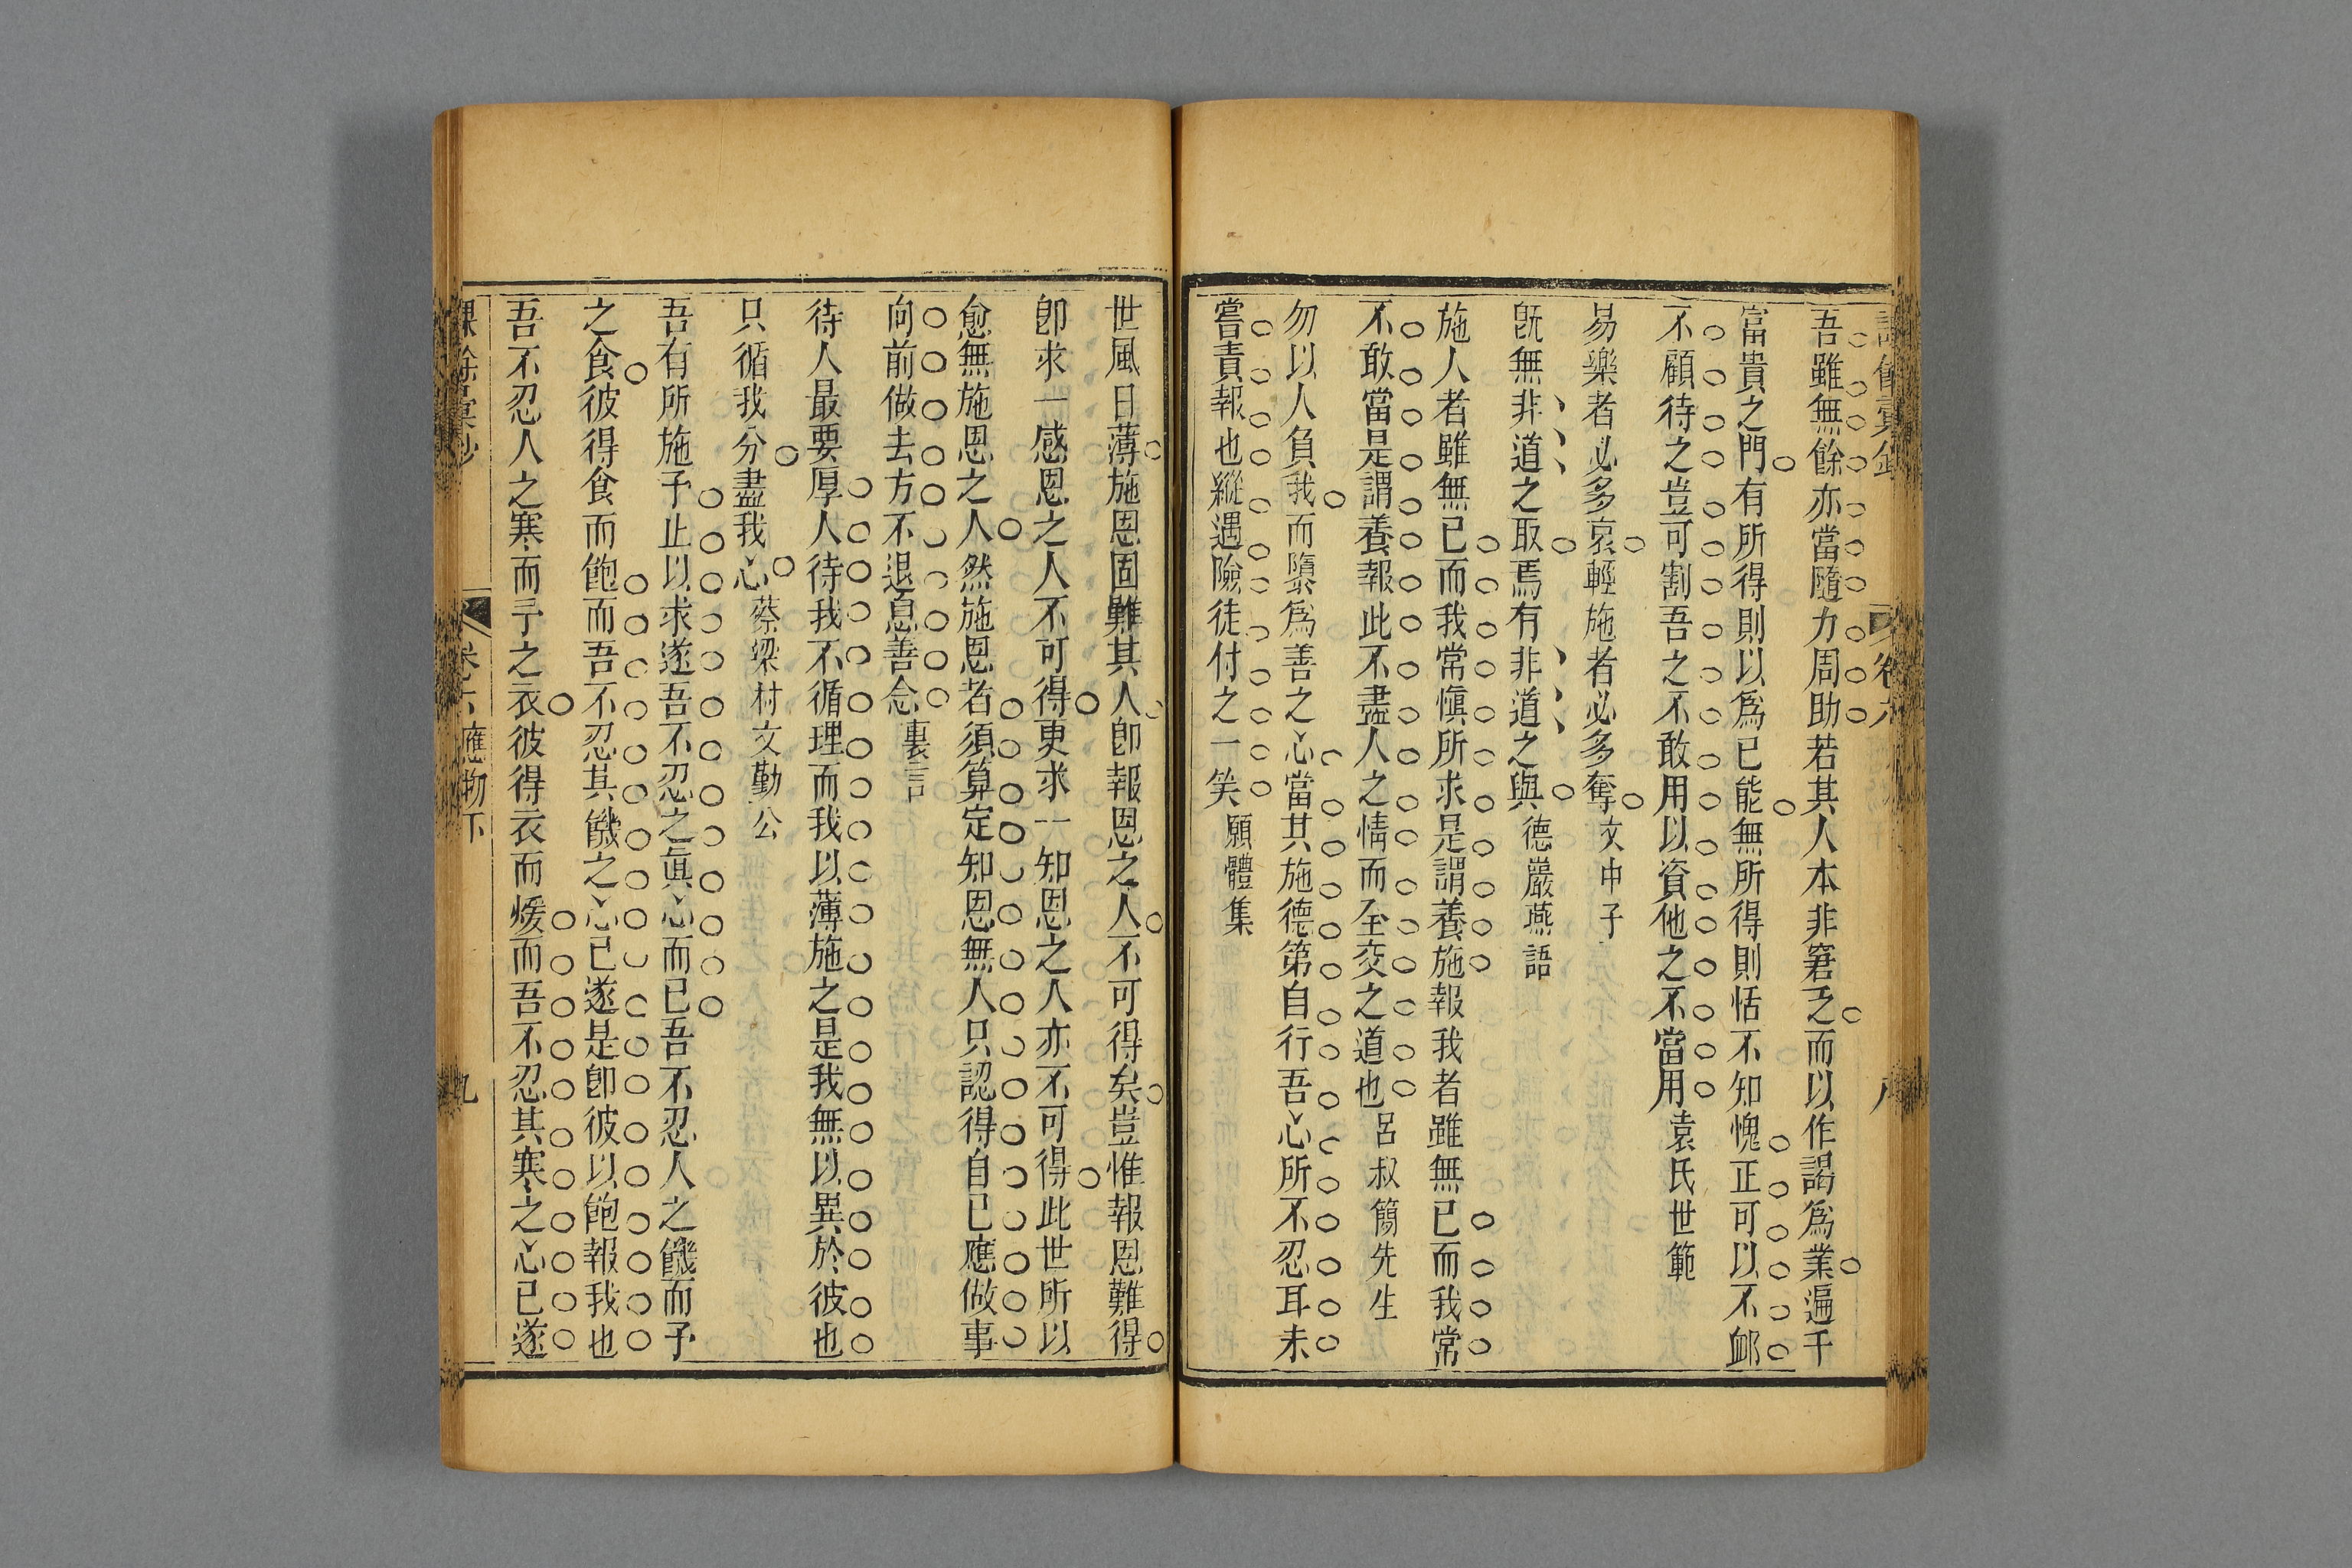 吾雖無餘亦當隨力周助若其人本非窘乏而以作謁爲業遍干
富貴之門有所得則以爲已能無所得則恬不知愧正可以不䘏
不顧待之豈可割吾之不敢用以資他之不當用袁氏世範
易樂者必多哀輕施者必多奪文中子
旣無非道之取焉有非道之與德巖燕語
施人者雖無已而我常愼所求是謂養施報我者雖無已而我常
不敢當是謂養報此不盡人之情而全交之道也呂叔簡先生
勿以人負我而隳爲善之心當其施德第自行吾心所不忍耳未
嘗責報也縱遇險徒付之一笑願體集
卷六
八
世風日薄施恩固難其人卽報恩之人不可得矣豈惟報恩難得
卽求一感恩之人不可得更求一知恩之人亦不可得此世所以
愈無施恩之人然施恩者須算定知恩無人只認得自已應做事
向前做去方不退息善念裏言
待人最要厚人待我不循理而我以薄施之是我無以異於彼也
只循我分盡我心蔡梁村文勤公
吾有所施予止以求遂吾不忍之眞心而已吾不忍人之饑而予
之食彼得食而飽而吾不忍其饑之心已遂是卽彼以飽報我也
吾不忍人之寒而予之衣彼得衣而煖而吾不忍其寒之心已遂
卷六 應物下
九